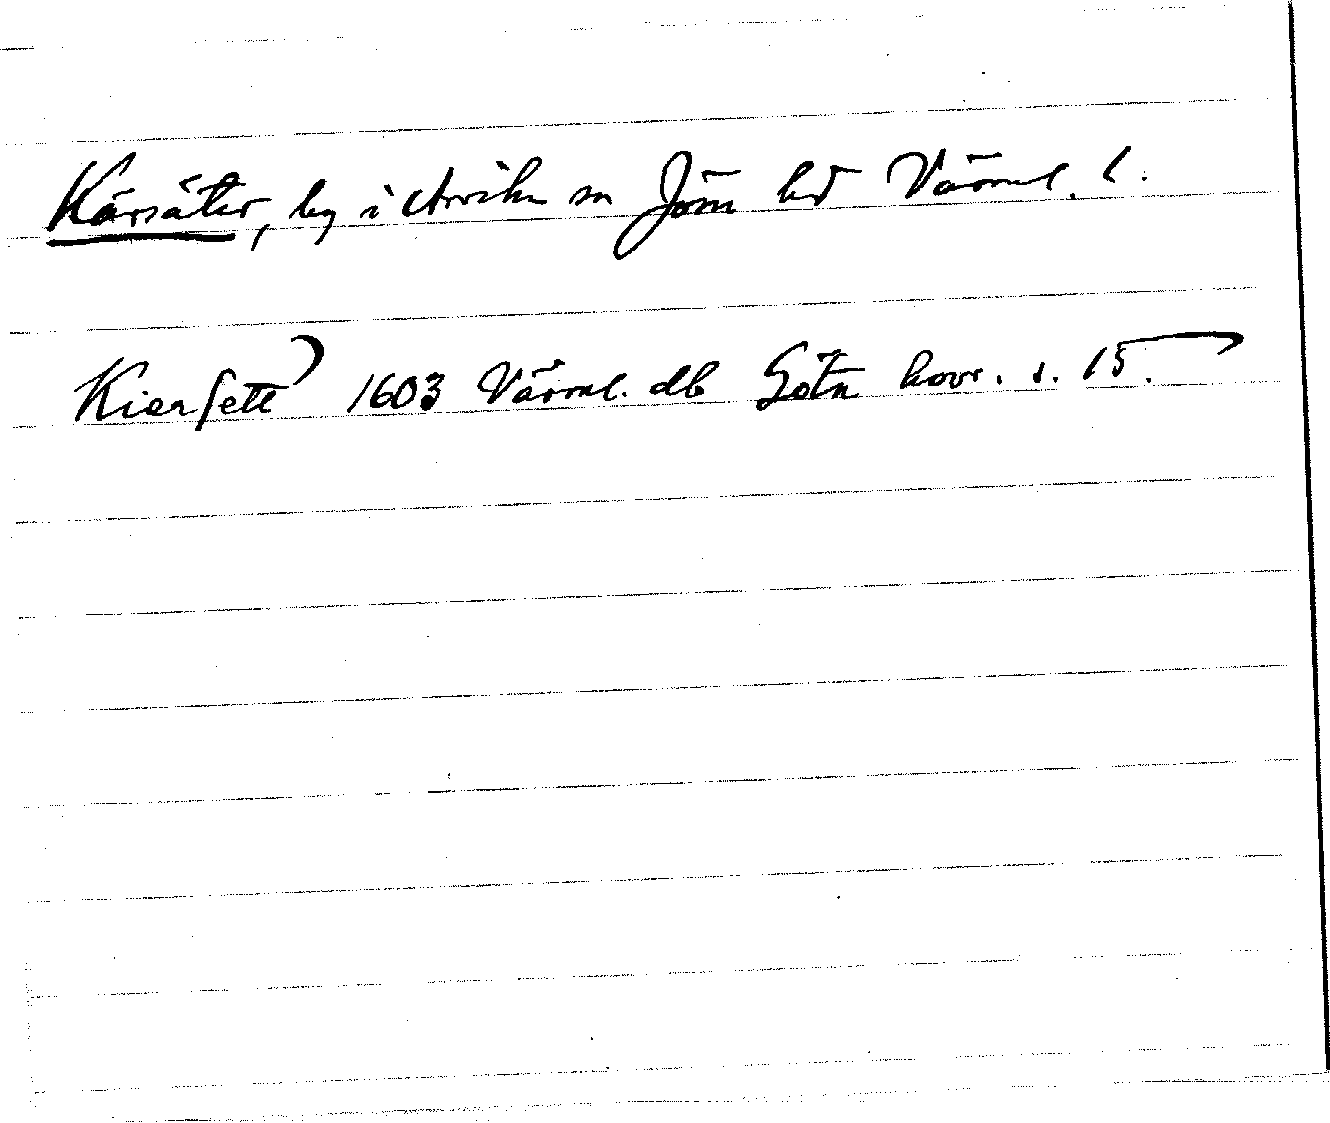 Kärsäter, by i Arvika sn Jöss hd Värml. l.
Kiersett 1603 Värml. db Göta hovr. s. 15.